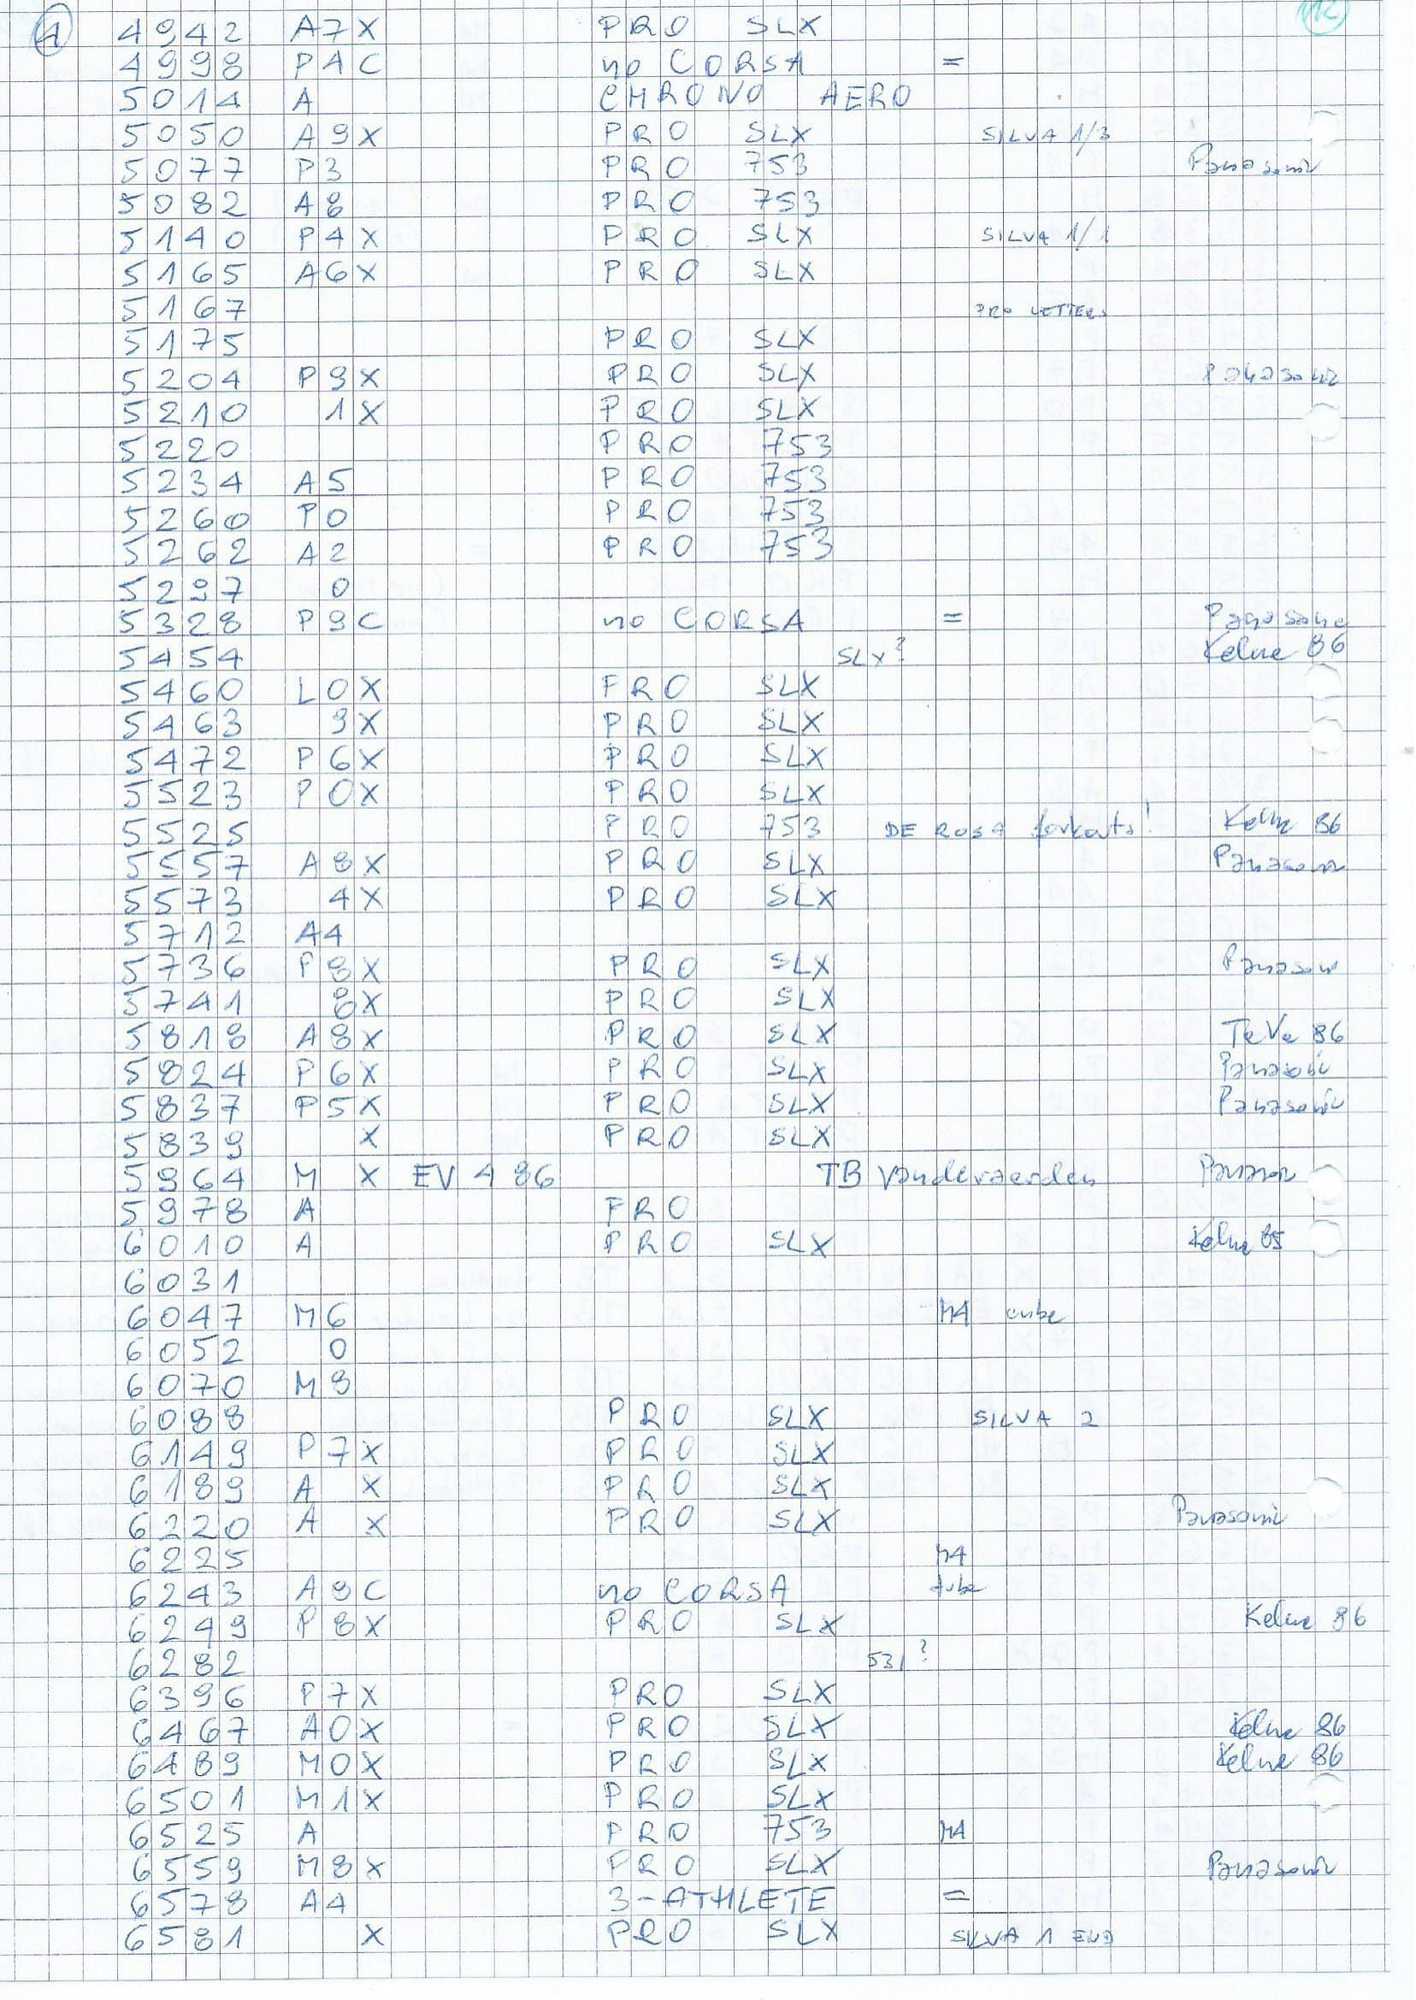 1 4942 A7X PRO SLX 112
4998 P4C no CORSA =
5014 A CHRONO AERO
5050 A9X PRO SLX SILVA 1/3
5077 P3 PRO 753 Panasonic
5082 A8 PRO 753
5140 P4X PRO SLX SILVA 1/1
5165 A6X PRO SLX
5167 PRO LETTERS
5175 PRO SLX
5204 P9X PRO SLX Panasonic
5210 1X PRO SLX
5220 PRO 753
5234 A5 PRO 753
5260 P0 PRO 753
5262 A2 PRO 753
5297 0
5328 P9C no CORSA = Panasonic
5454 SLX? Kelme 86
5460 L0X PRO SLX
5463 9X PRO SLX
5472 P6X PRO SLX
5523 P0X PRO SLX
5525 PRO 753 DE ROSA forkouts! Kelme 86
5557 A8X PRO SLX Panasonic
5573 4X PRO SLX
5712 A4
5736 P8X PRO SLX Panasonic
5741 8X PRO SLX
5818 A8X PRO SLX TeVe 86
5824 P6X PRO SLX Panasonic
5837 P5X PRO SLX Panasonic
5839 X PRO SLX
5964 M X EV 4 86 TB Vanderaerden Panasonic
5978 A PRO
6010 A PRO SLX Kelme 85
6031
6047 M6 M4 cube
6052 0
6070 M8
6088 PRO SLX SILVA 2
6149 P7X PRO SLX
6189 A X PRO SLX
6220 A X PRO SLX Panasonic
6225 M4
6243 A9C no CORSA tube
6249 P8X PRO SLX Kelme 86
6282 531?
6396 P7X PRO SLX
6467 A0X PRO SLX Kelme 86
6489 M0X PRO SLX Kelme 86
6501 M1X PRO SLX
6525 A PRO 753 M4
6559 M8X PRO SLX Panasonic
6578 A4 3-ATHLETE =
6581 X PRO SLX SILVA 1 END